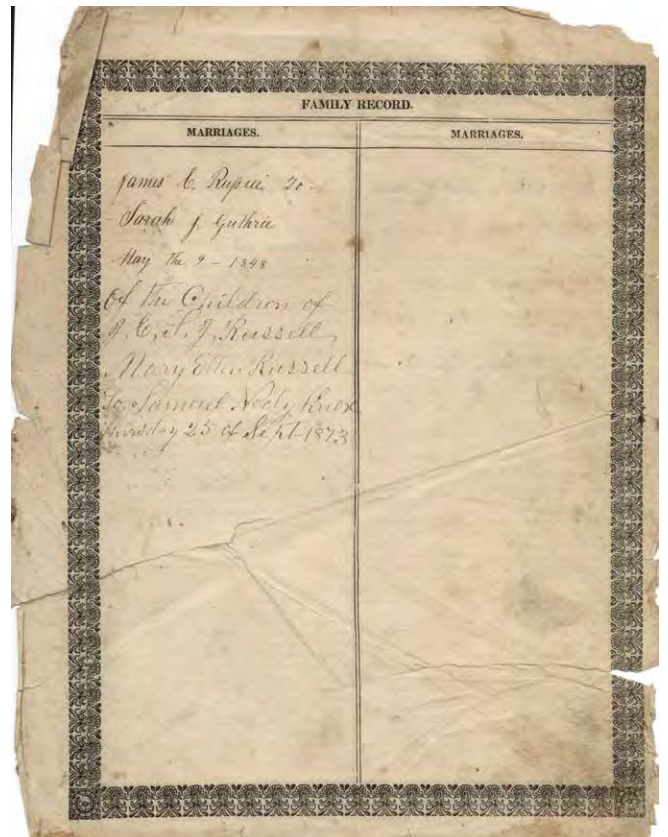 FAMILY RECORD.
MARRIAGES.
James C. Russell To
Sarah J. Guthrie
May the 9 - 1848
Of the Children of
J. C. & S. J. Russell
Mary Ellen Russell
To Samuel Neely Knox
Thursday 25 of Sept 1873
MARRIAGES.